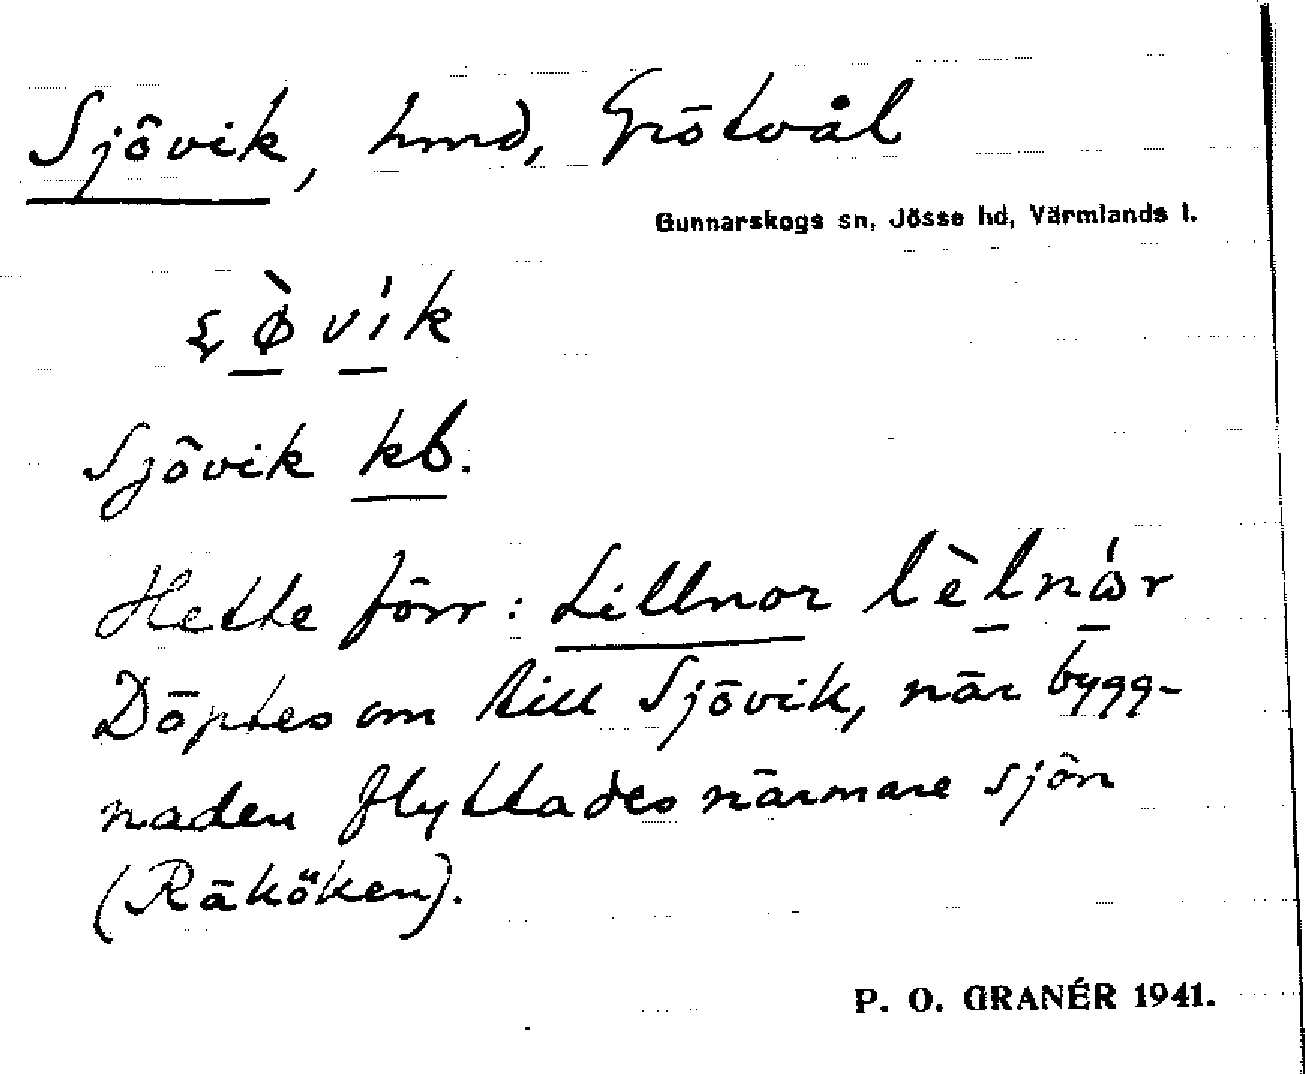 Sjövik, hmd, Grötvål
Gunnarskogs sn, Jösse hd, Värmlands l.
Sjövik kb.
Hette förr: Lillnor lèlnór
Döptes om till Sjövik, när bygg-
naden flyttades närmare sjön
(Räköken).
P. O. GRANÉR 1941.